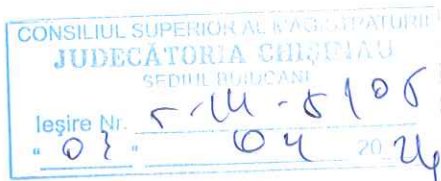 CONSILIUL SUPERIOR AL MAGISTRATURII
JUDECĂTORIA CHIȘINĂU
SEDIUL BUIUCANI
Ieșire Nr.
" 03 " 04 20 24